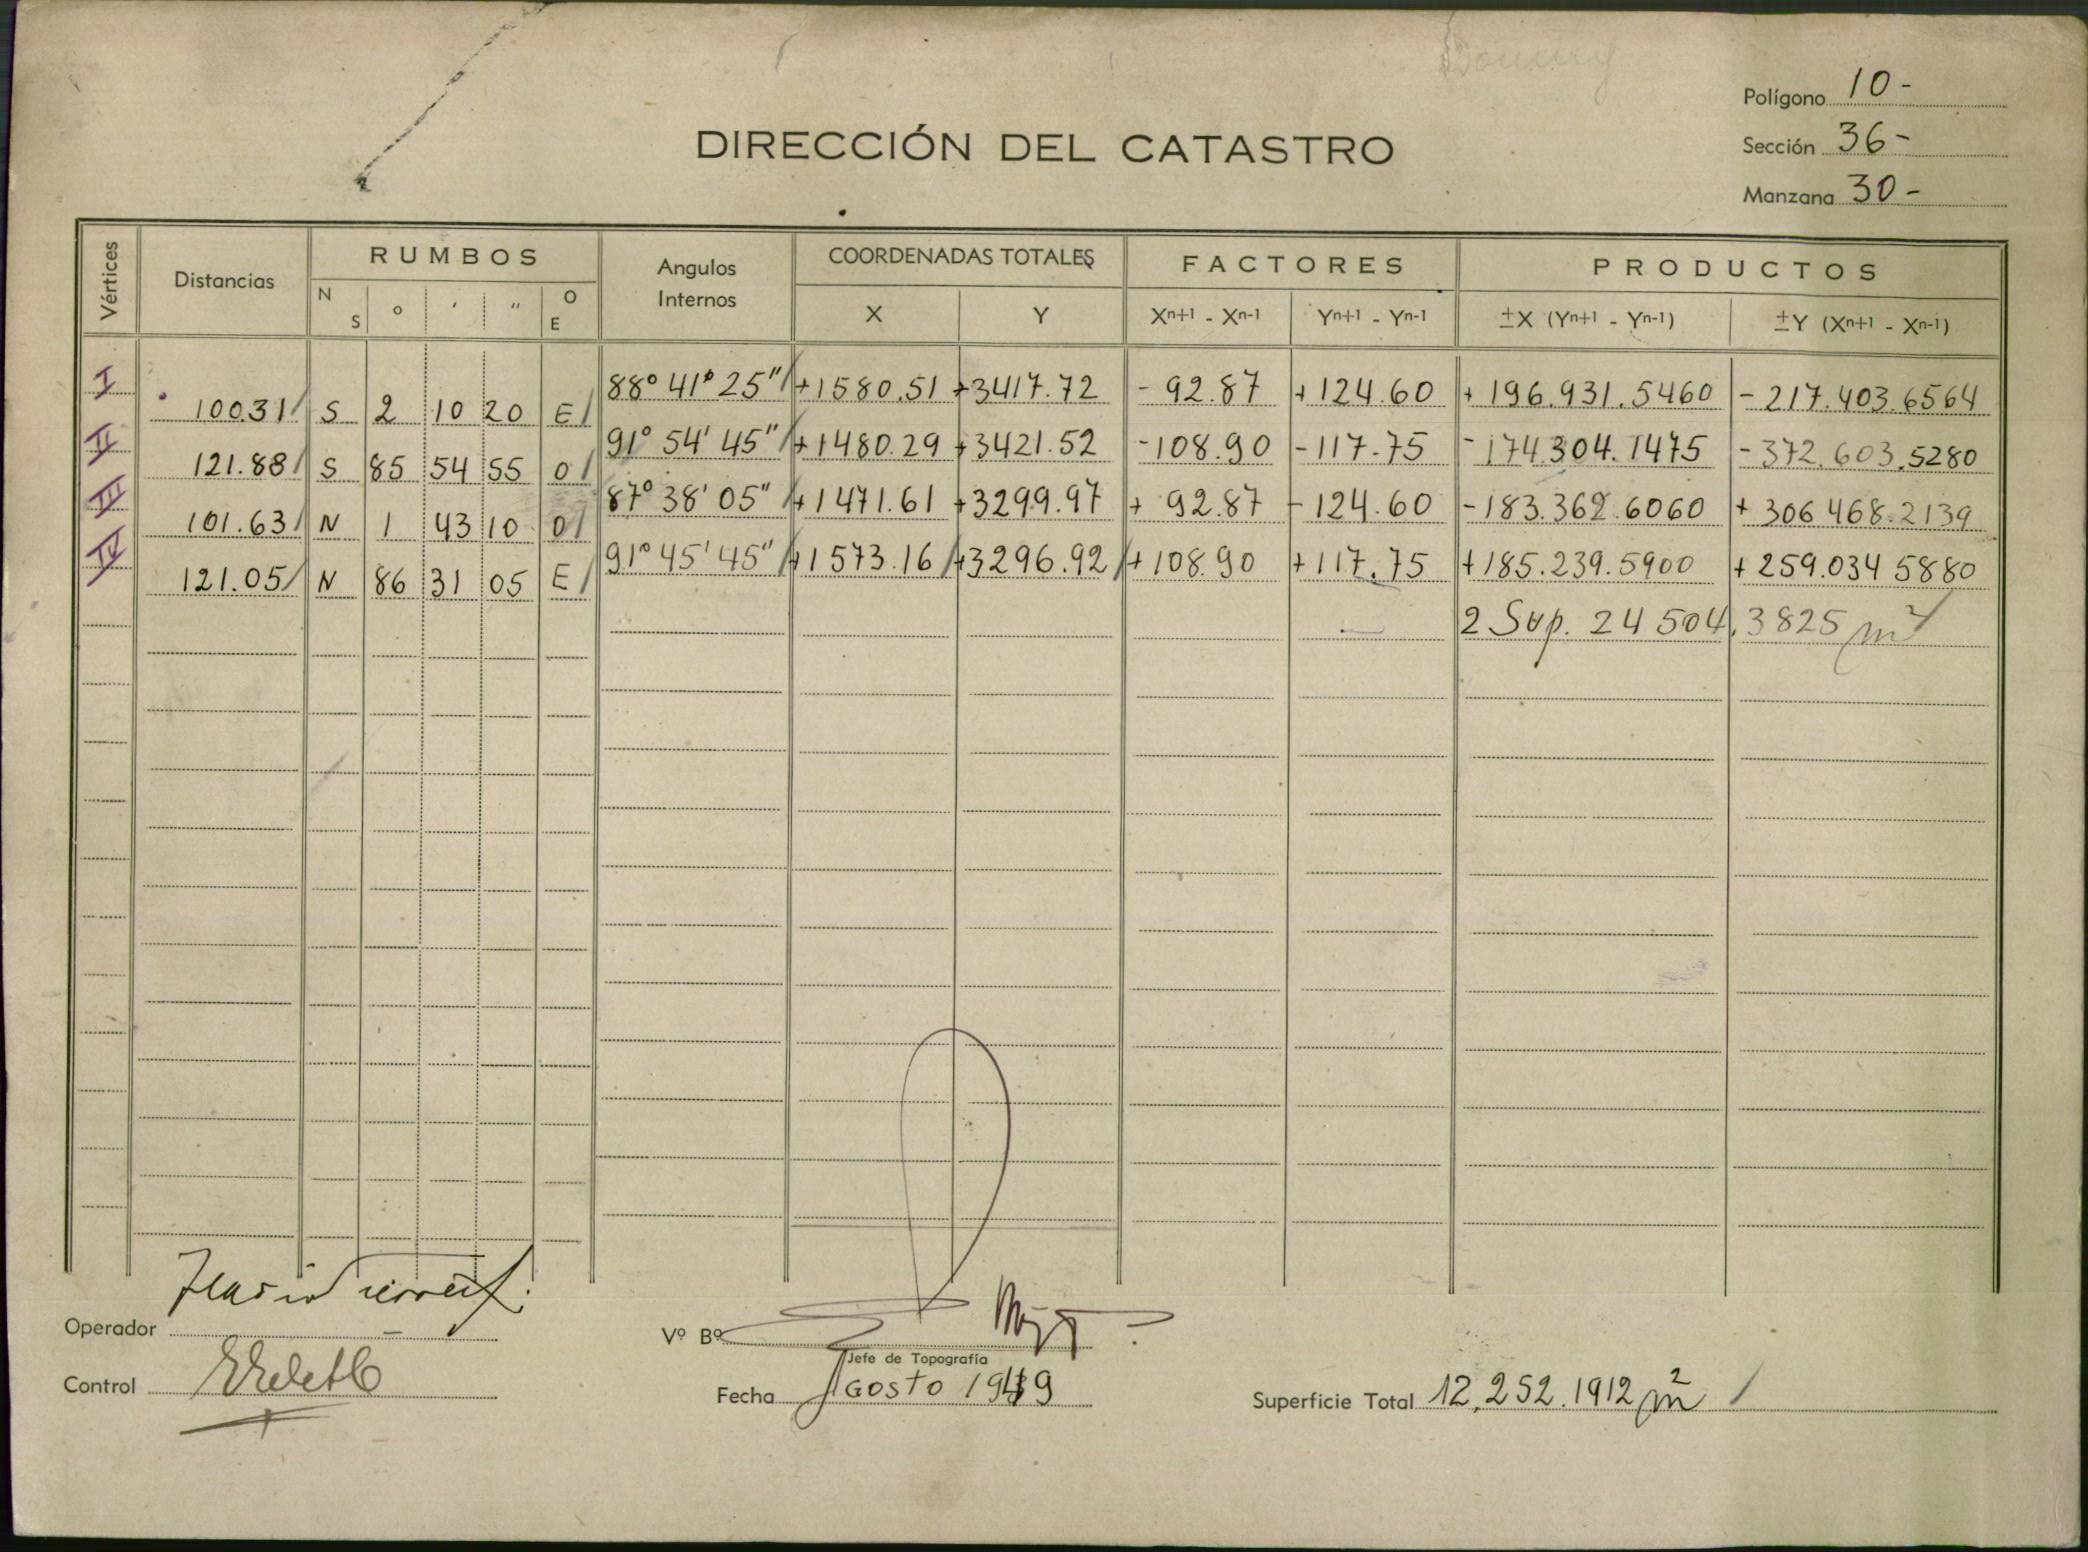 Polígono 10 -
DIRECCIÓN DEL CATASTRO
Sección 36 -
Manzana 30 -
Vértices Distancias RUMBOS Angulos Internos COORDENADAS TOTALES FACTORES PRODUCTOS
N S ° ' " O E X Y Xn+1 - Xn-1 Yn+1 - Yn-1 ±X (Yn+1 - Yn-1) ±Y (Xn+1 - Xn-1)
I 88° 41° 25" +1580.51 +3417.72 - 92.87 + 124.60 + 196.931.5460 - 217.403.6564
100.31 S 2 10 20 E
II 91° 54' 45" +1480.29 +3421.52 -108.90 -117.75 -174.304.1475 -372.603.5280
121.88 S 85 54 55 O
III 87° 38' 05" +1471.61 +3299.97 + 92.87 - 124.60 -183.362.6060 + 306 468.2139
101.63 N 1 43 10 O
IV 91° 45' 45" +1573.16 +3296.92 +108.90 +117.75 +185.239.5900 + 259.034 5880
121.05 N 86 31 05 E
2 Sup. 24 504.3825 m²
Operador
Vº Bº
Jefe de Topografía
Control
Fecha Agosto 1949
Superficie Total 12,252.1912 m²